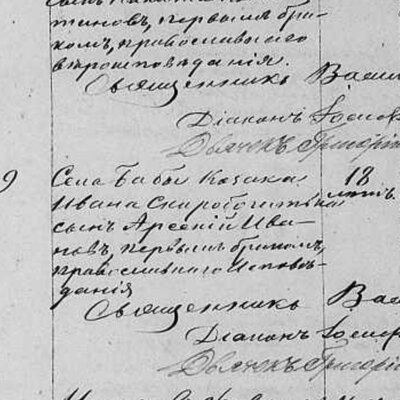 тановъ, первымъ бра-
комъ, православнаго
вѣроисповѣданія.
Священникъ Васи
Діаконъ Іосиф
Дьячекъ Григорій
9 Села Бабы Козака 18
Ивана Скиробогатька лѣтъ.
сынъ Арсеній Ива-
новъ, первымъ бракомъ,
православнаго исповѣ-
данія
Священникъ Васи
Діаконъ Іосиф
Дьячекъ Григорій